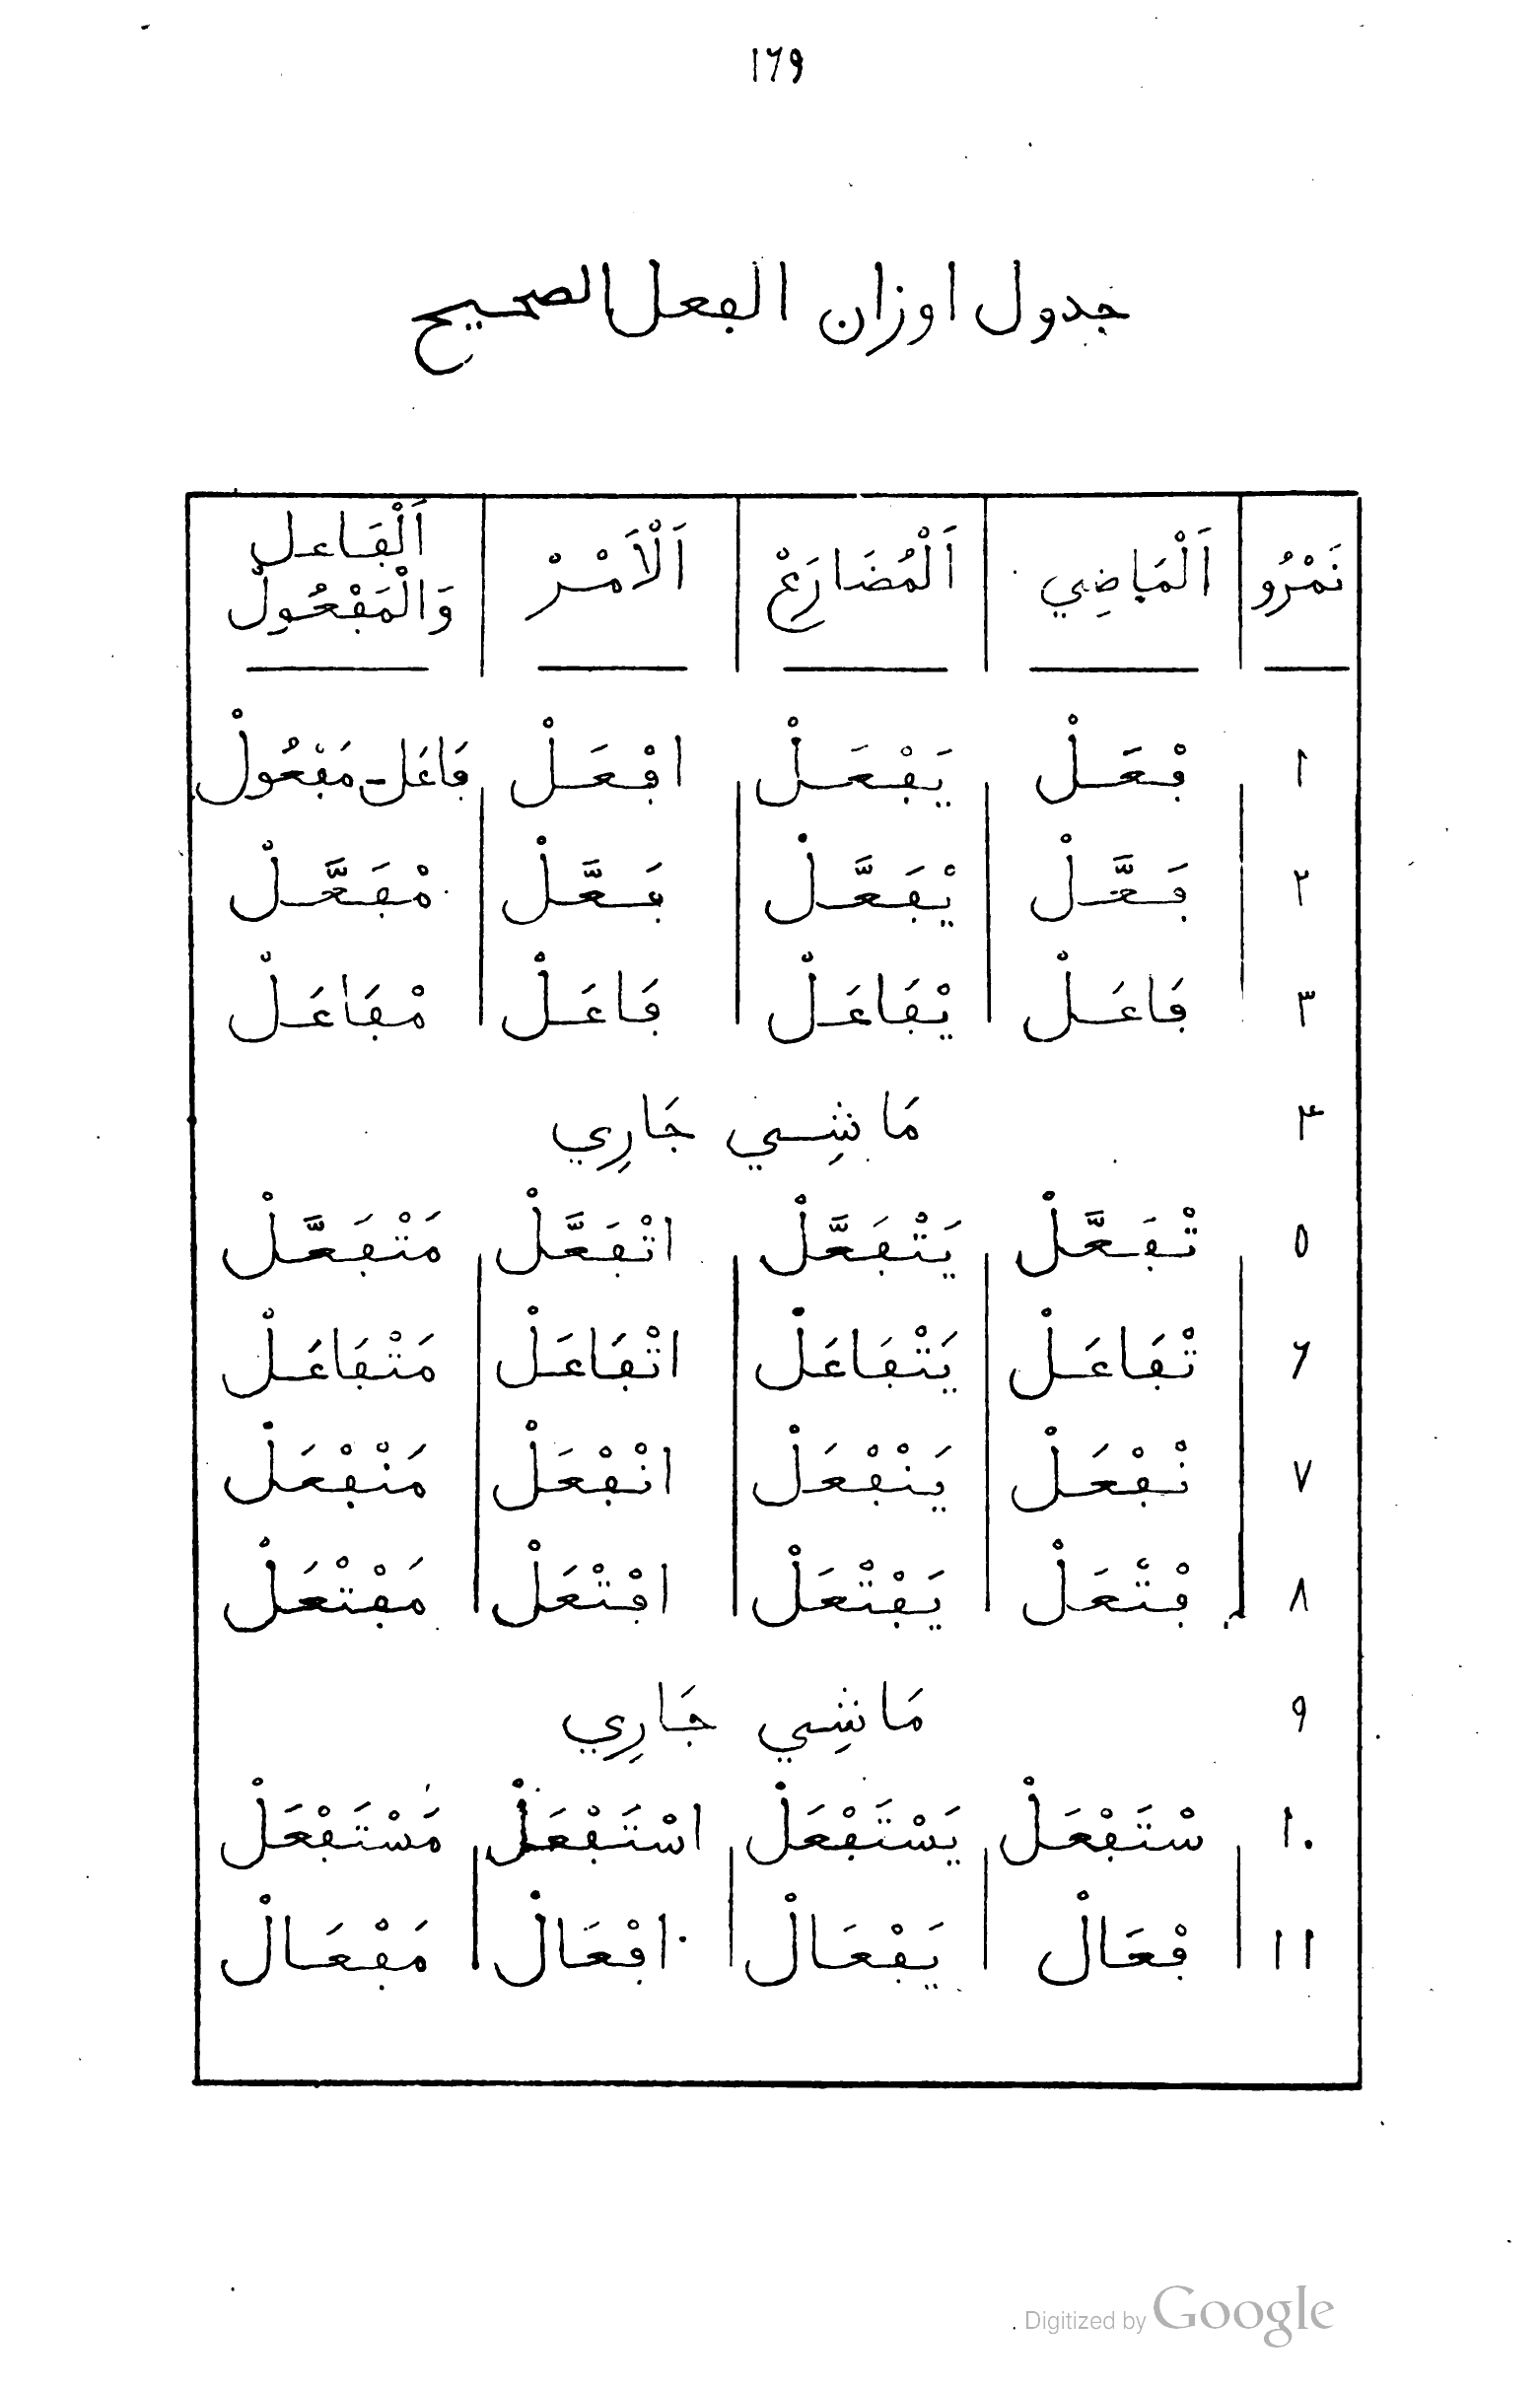 ١٦٩
جدول اوزان الفعل الصحيح
نَمْرُو اَلْمَاضِي اَلْمُضَارَعْ اَلْاَمْرْ اَلْفَاعل وَالْمَفْعُولْ
١ فْعَلْ يَفْعَلْ افْعَلْ فَاعَل - مَفْعُولْ
٢ فَعَّلْ يْفَعَّلْ فَعَّلْ مْفَعَّلْ
٣ فَاعَلْ يْفَاعَلْ فَاعَلْ مْفَاعَلْ
٤ مَاشِي جَارِي
٥ تْفَعَّلْ يَتْفَعَّلْ اتْفَعَّلْ مَتْفَعَّلْ
٦ تْفَاعَلْ يَتْفَاعَلْ اتْفَاعَلْ مَتْفَاعَلْ
٧ نْفْعَلْ يَنْفْعَلْ انْفْعَلْ مَنْفْعَلْ
٨ فْتْعَلْ يَفْتْعَلْ افْتْعَلْ مَفْتْعَلْ
٩ مَاشِي جَارِي
١٠ سْتَفْعَلْ يَسْتَفْعَلْ اسْتَفْعَلْ مَسْتَفْعَلْ
١١ فْعَالْ يَفْعَالْ افْعَالْ مَفْعَالْ
Digitized by Google